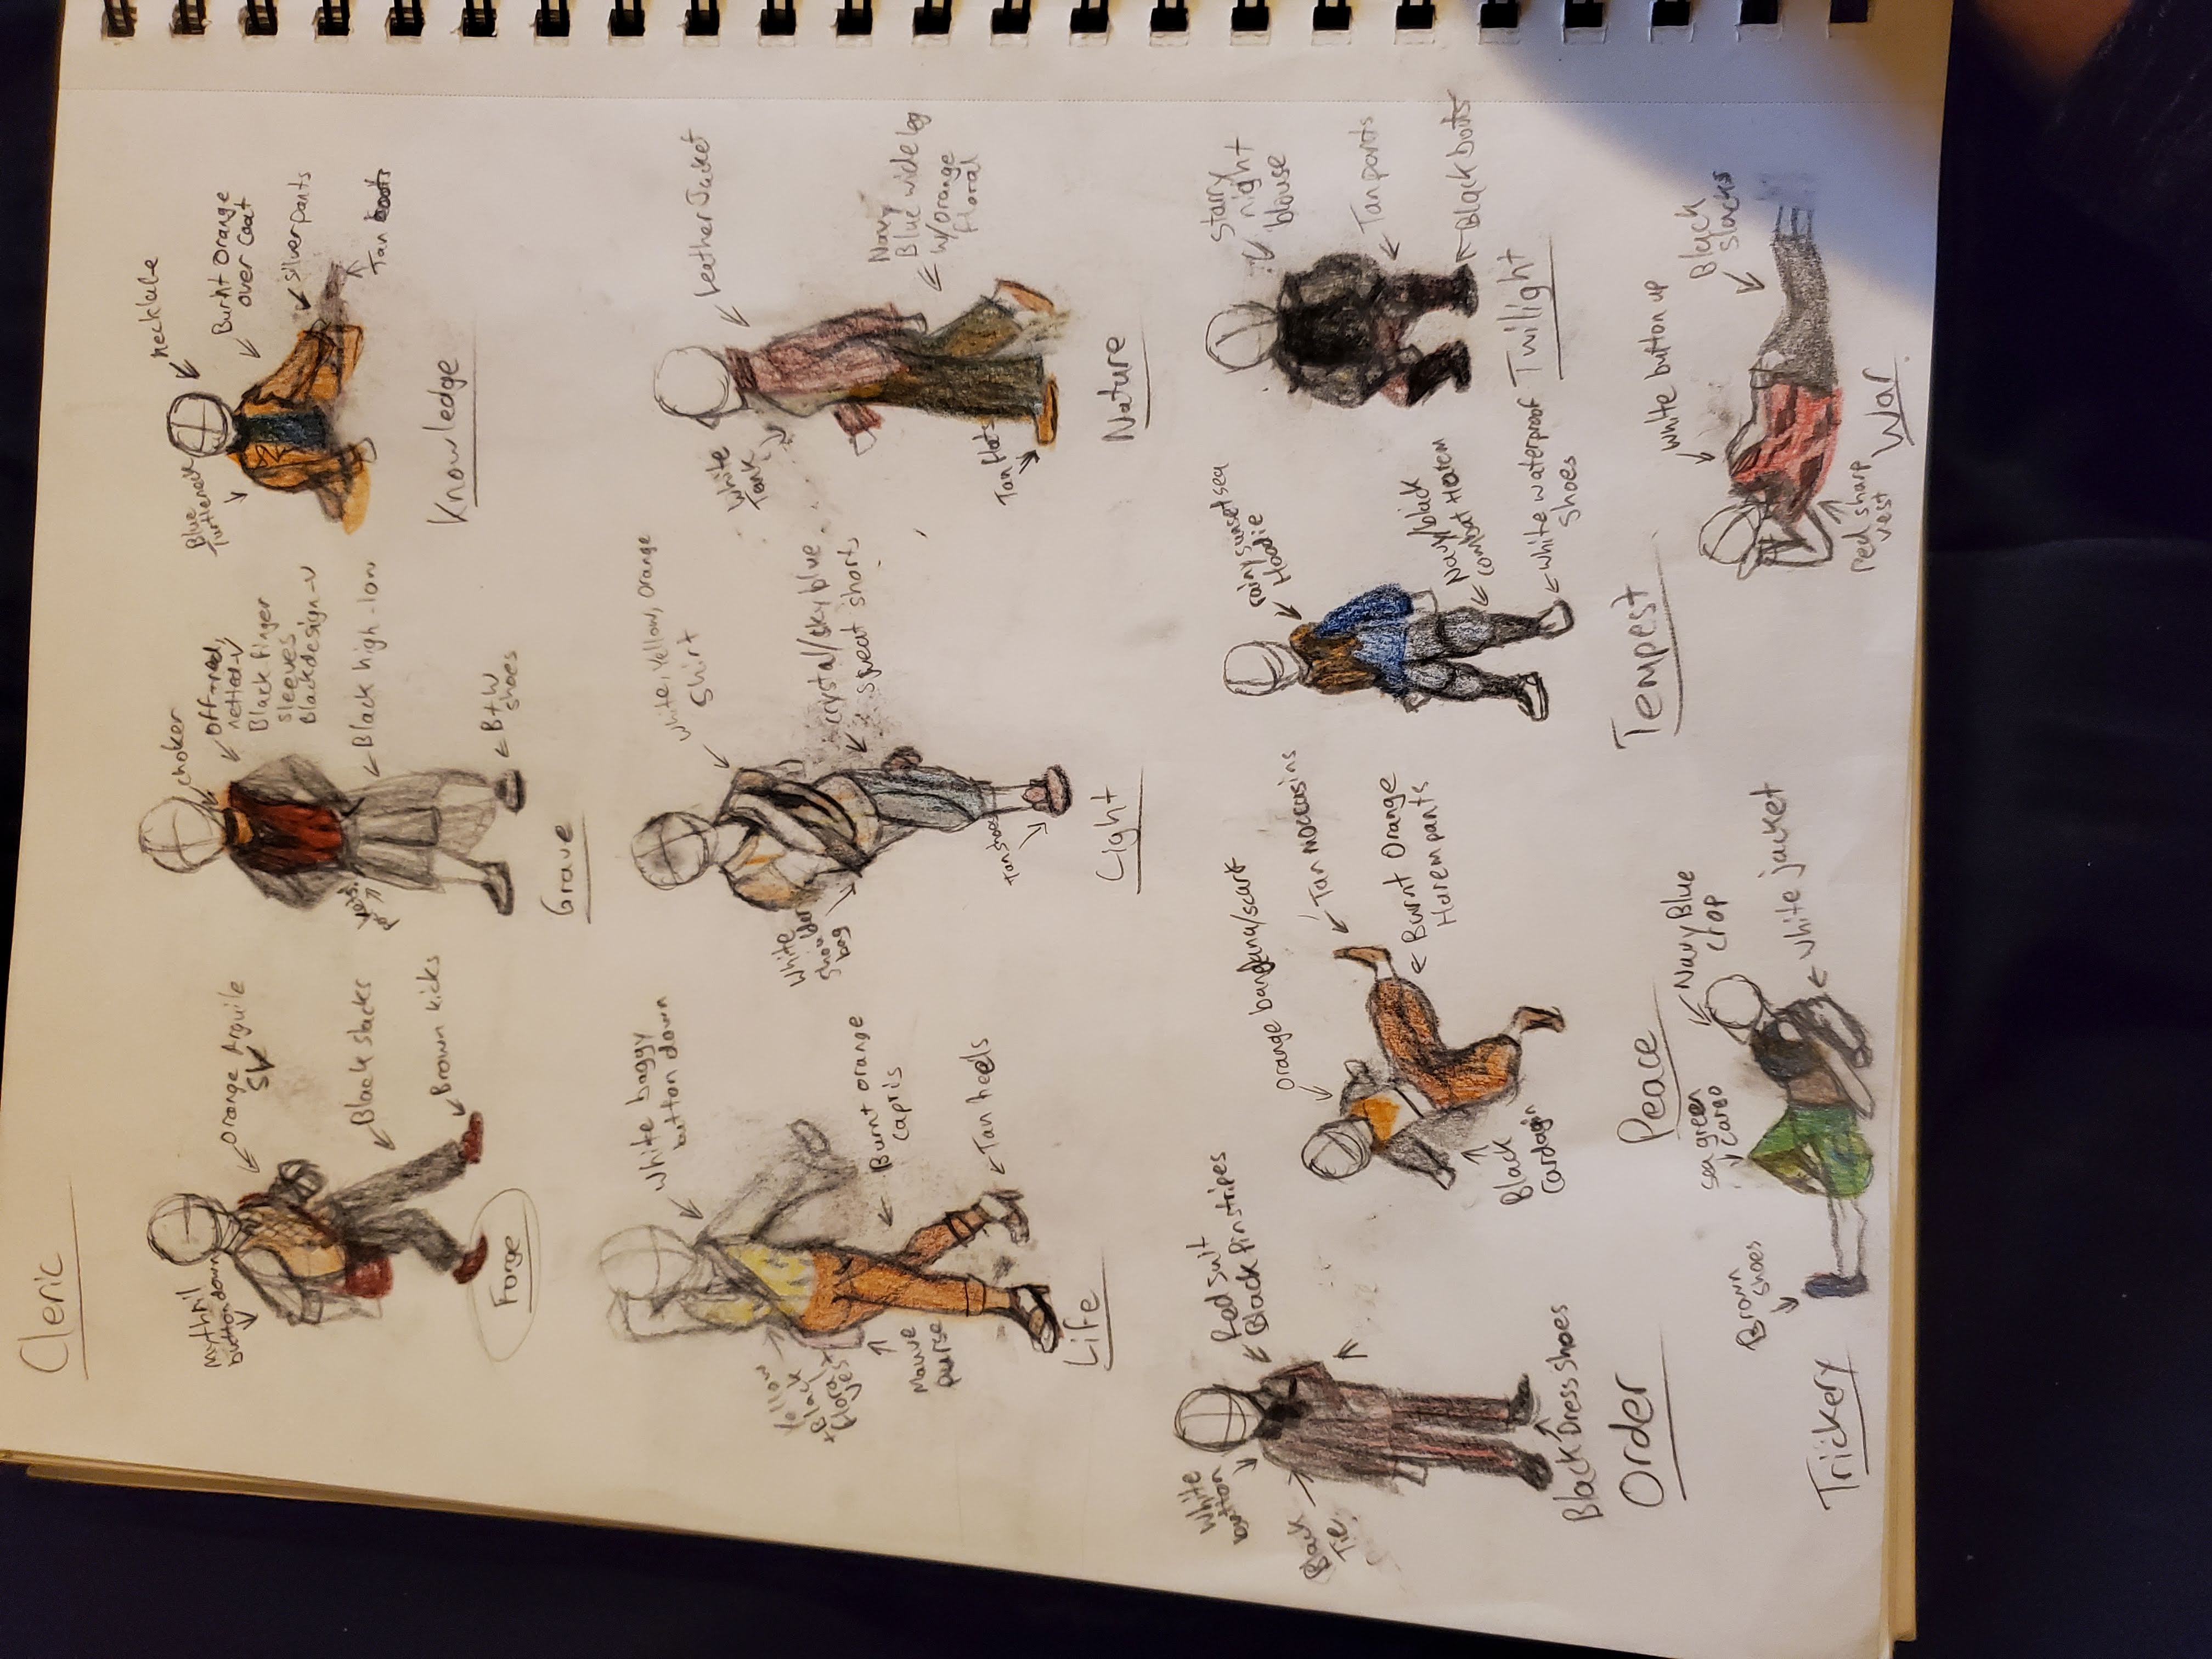 Cleric
Mythril
button down
Orange Arguile
Black slacks
Brown kicks
Forge
choker
Off-red,
netted-V
Black finger
sleeves
Black design-V
pockets!
Black high-low
B+W
shoes
Grave
necklace
Blue
Turtleneck
Burnt Orange
over coat
silver pants
Tan boots
Knowledge
White baggy
button down
Yellow
+Black
floral
vest
Mauve
purse
Burnt orange
capris
Tan heels
Life
White, Yellow, Orange
Shirt
White
shoulder
bag
crystal/sky blue
sweat shorts
Tan shoes
Light
White
Tank
Leather Jacket
Navy
Blue wide leg
w/orange
floral
Tan flats
Nature
White
button
Red suit
Black Pinstripes
Black
Tie
Black Dress shoes
Order
Orange bandana/scarf
Tan moccasins
Burnt Orange
Harem pants
Black
Cardagin
Peace
rainy sunset sea
Hoodie
Navy/black
combat Harem
White waterproof
Shoes
Tempest
Starry
night
blouse
Tan pants
Black boots
Twilight
Brown
shoes
sea green
cargo
Navy Blue
crop
White jacket
Trickery
White button up
Black
Slacks
red sharp
vest
War